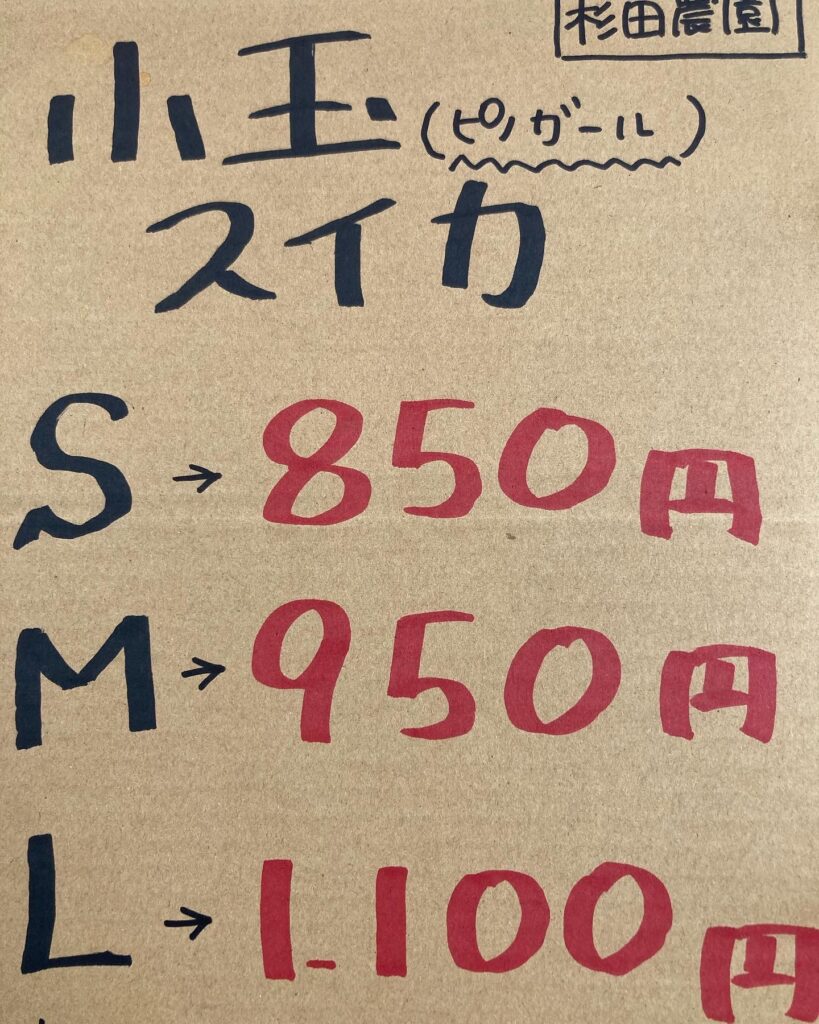 杉田農園
小玉(ピノガール)
スイカ
S→850円
M→950円
L→1.100円